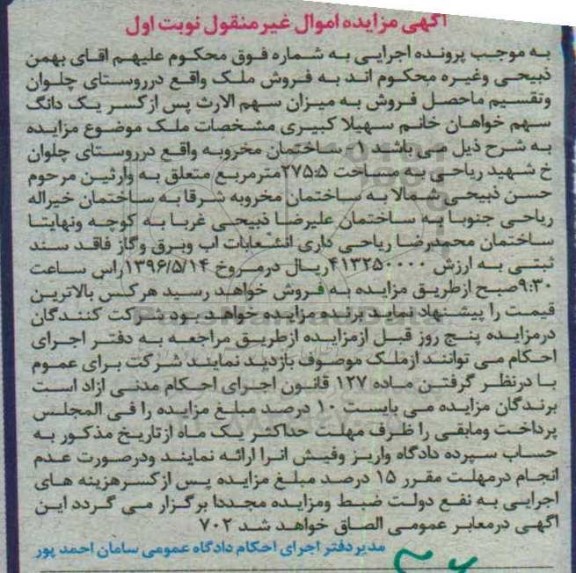 آگهی مزایده اموال غیر منقول نوبت اول
به موجب پرونده اجرایی به شماره فوق محکوم علیهم اقای بهمن
ذبیحی وغیره محکوم اند به فروش ملک واقع درروستای چلوان
وتقسیم ماحصل فروش به میزان سهم الارث پس ازکسر یک دانگ
سهم خواهان خانم سهیلا کبیری مشخصات ملک موضوع مزایده
به شرح ذیل می باشد ۱- ساختمان مخروبه واقع درروستای چلوان
خ شهید ریاحی به مساحت ۲۷۵/۵مترمربع متعلق به وارثین مرحوم
حسن ذبیحی شمالا به ساختمان مخروبه شرقا به ساختمان خیراله
ریاحی جنوبا به ساختمان علیرضا ذبیحی غربا به کوچه ونهایتا
ساختمان محمدرضا ریاحی داری انشعابات اب وبرق وگاز فاقد سند
ثبتی به ارزش ۴۱۳۲۵۰۰۰۰ریال درمروخ ۱۳۹۶/۵/۱۴راس ساعت
۹:۳۰صبح ازطریق مزایده به فروش خواهد رسید هرکس بالاترین
قیمت را پیشنهاد نماید برنده مزایده خواهد بود شرکت کنندگان
درمزایده پنج روز قبل ازمزایده ازطریق مراجعه به دفتر اجرای
احکام می توانند ازملک موصوف بازدید نمایند شرکت برای عموم
با درنظر گرفتن ماده ۱۲۷ قانون اجرای احکام مدنی ازاد است
برندگان مزایده می بایست ۱۰ درصد مبلغ مزایده را فی المجلس
پرداخت ومابقی را ظرف مهلت حداکثر یک ماه ازتاریخ مذکور به
حساب سپرده دادگاه واریز وفیش انرا ارائه نمایند ودرصورت عدم
انجام درمهلت مقرر ۱۵ درصد مبلغ مزایده پس ازکسرهزینه های
اجرایی به نفع دولت ضبط ومزایده مجددا برگزار می گردد این
اگهی درمعابر عمومی الصاق خواهد شد ۷۰۲
مدیردفتر اجرای احکام دادگاه عمومی سامان احمد پور